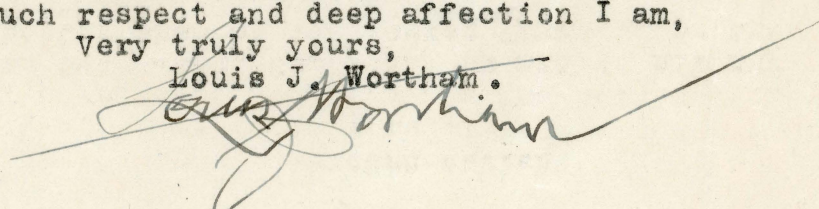 uch respect and deep affection I am,
Very truly yours,
Louis J. Wortham.
Louis J. Wortham